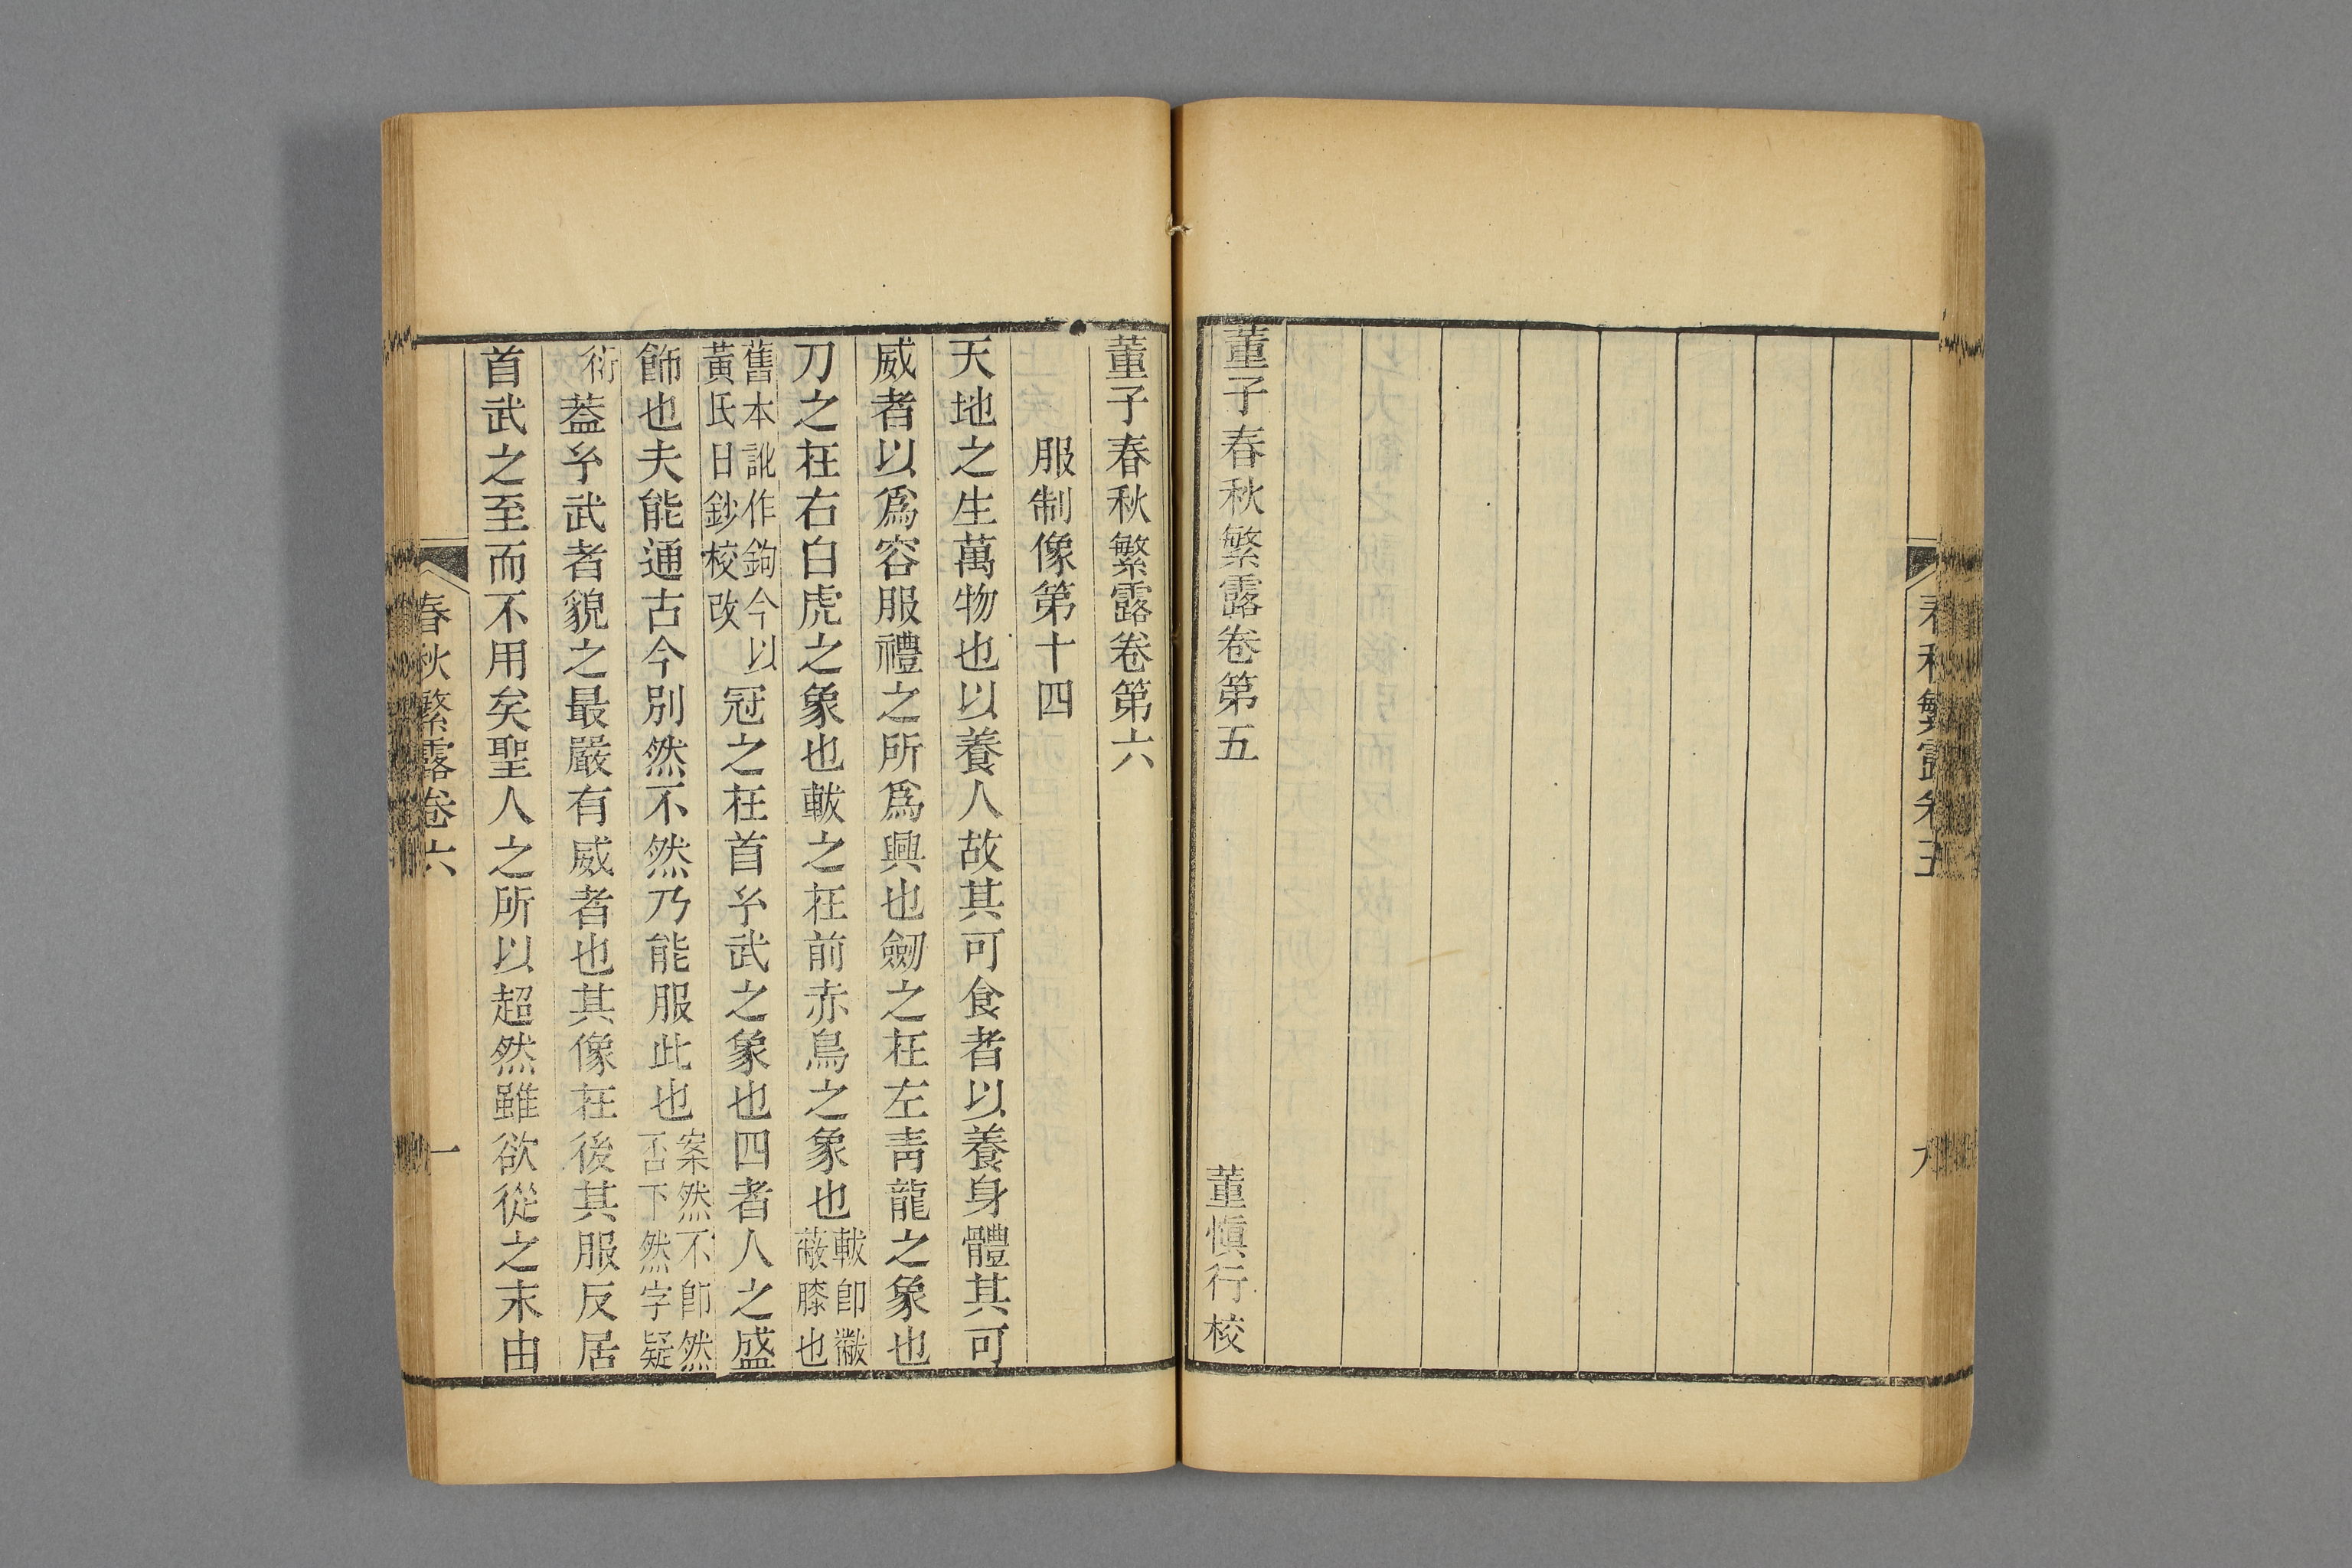 春秋繁露卷五
九
董子春秋繁露卷第五
董慎行校
董子春秋繁露卷第六
服制像第十四
天地之生萬物也以養人故其可食者以養身體其可
威者以爲容服禮之所爲興也劒之在左青龍之象也
刀之在右白虎之象也韍之在前赤鳥之象也韍卽黻蔽膝也
舊本訛作鉤今以黃氏日鈔校改冠之在首𤣥武之象也四者人之盛
飾也夫能通古今別然不然乃能服此也案然不卽然否下然字疑
衍葢𤣥武者貌之最嚴有威者也其像在後其服反居
首武之至而不用矣聖人之所以超然雖欲從之末由
春秋繁露卷六
一